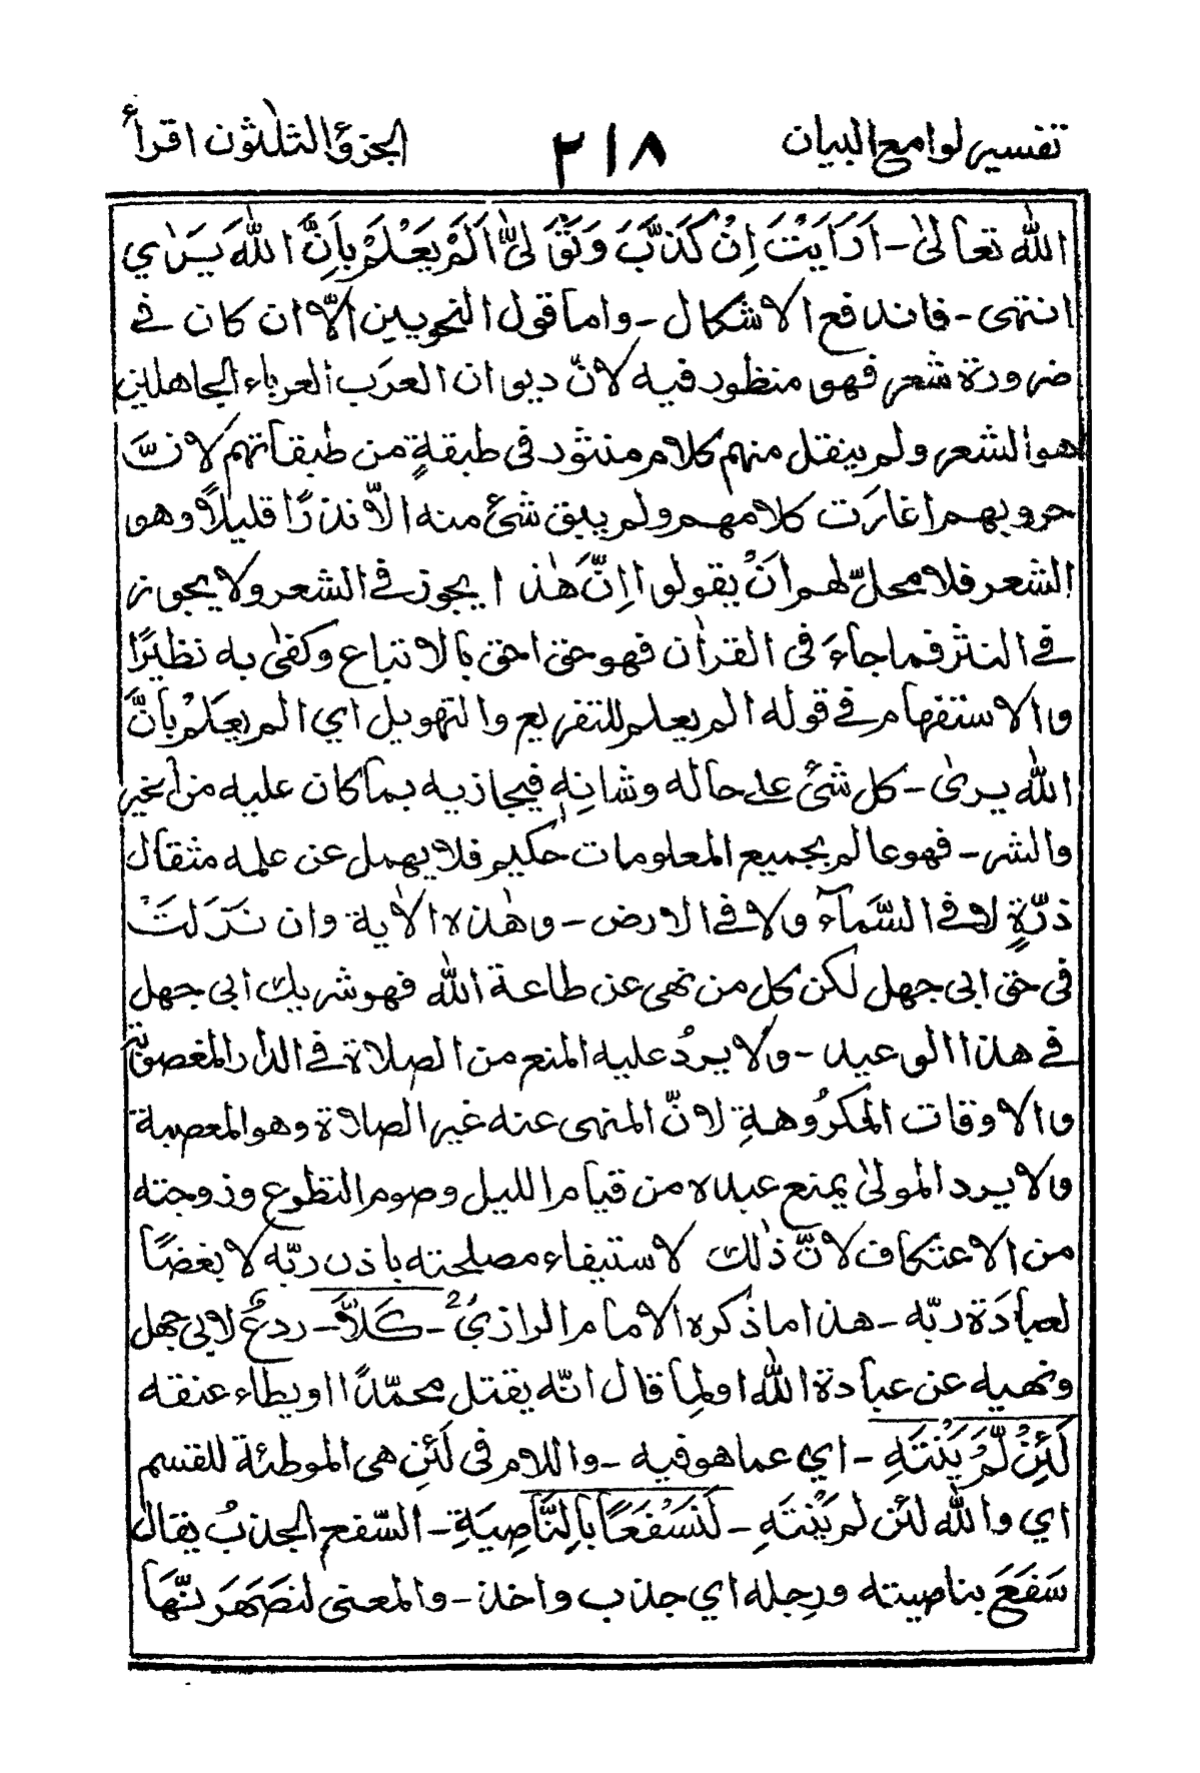 تفسير لوامع البيان ٢١٨ الجزؤ الثلٰثون اقرأ
الله تعالىٰ - اَرَاَيْتَ اِنْ كَذَّبَ وَتَوَلّىٰ اَلَمْ يَعْلَمْ بِاَنَّ اللهَ يَرٰي
انتهى - فاندفع الاشكال - واما قول النحويين الّا ان كان في
ضرورة شعر فهو منظور فيه لانّ ديوان العرَب العرباء الجاهلين
هو الشعر ولم ينقل منهم كلام منثور فى طبقةٍ من طبقاتهم لانَّ
حروبهم اغارَت كلامهم ولم يبق شئ منه الّا نذرًا قليلاً وهو
الشعر فلا محلّ لهم انْ يقولوا اِنَّ هٰذا يجوز في الشعر ولا يجوز
في النثر فما جاءَ فى القراٰن فهو حق احق بالاتباع وكفىٰ به نظيرًا
والاستفهام في قوله الم يعلم للتقريع والتهويل اي الم يعلَمْ بأنَّ
الله يرىٰ - كل شئ على حاله وشانِهٖ فيجازيه بما كان عليه من الخير
والشر - فهو عالم بجميع المعلومات حكيم فلا يهمل عن علمه مثقال
ذرّةٍ لا في السَّمآء ولا في الارض - وهٰذه الاٰية وان نَزَلَتْ
فى حق ابى جهل لكن كل من نهى عن طاعة الله فهو شريك ابى جهل
في هذا الوعيد - ولا يردُ عليه المنع من الصلاة في الدار المغصوبة
والاوقات المكرُوهةِ لانّ المنهى عنه غير الصلاة وهو المعصية
ولا يرد المولىٰ يمنع عبده من قيام الليل وصوم التطوع وزوجته
من الاعتكاف لانَّ ذٰلك لاستيفاء مصلحته باذن ربّه لا بغضًا
لعبادَة ربّه - هذا ما ذكره الامام الرازيُّ - كَلَّا - ردعٌ لابى جهل
ونهيه عن عبادة الله او لما قال انّه يقتل محمّدًا او يطاء عنقه
لَئِنْ لَّمْ يَنْتَهِ - اي عما هو فيه - واللام فى لَئِن هى الموطئة للقسم
اي والله لئن لم يَنْتَهِ - لَنَسْفَعًا بِالنَّاصِيَةِ - السّفع الجذبُ يقال
سَفَعَ بناصيته ورجله اي جذب واخذ - والمعنى لنصَهَرنّهَا